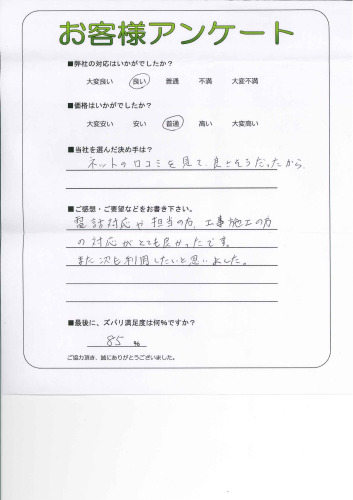 お客様アンケート
■弊社の対応はいかがでしたか？
大変良い 良い 普通 不満 大変不満
■価格はいかがでしたか？
大変安い 安い 普通 高い 大変高い
■当社を選んだ決め手は？
ネットの口コミを見て、良さそうだったから
■ご感想・ご要望などをお書き下さい。
電話対応や担当の方、工事施工の方
の対応がとても良かったです。
また次も利用したいと思いました。
■最後に、ズバリ満足度は何%ですか？
85 %
ご協力頂き、誠にありがとうございました。